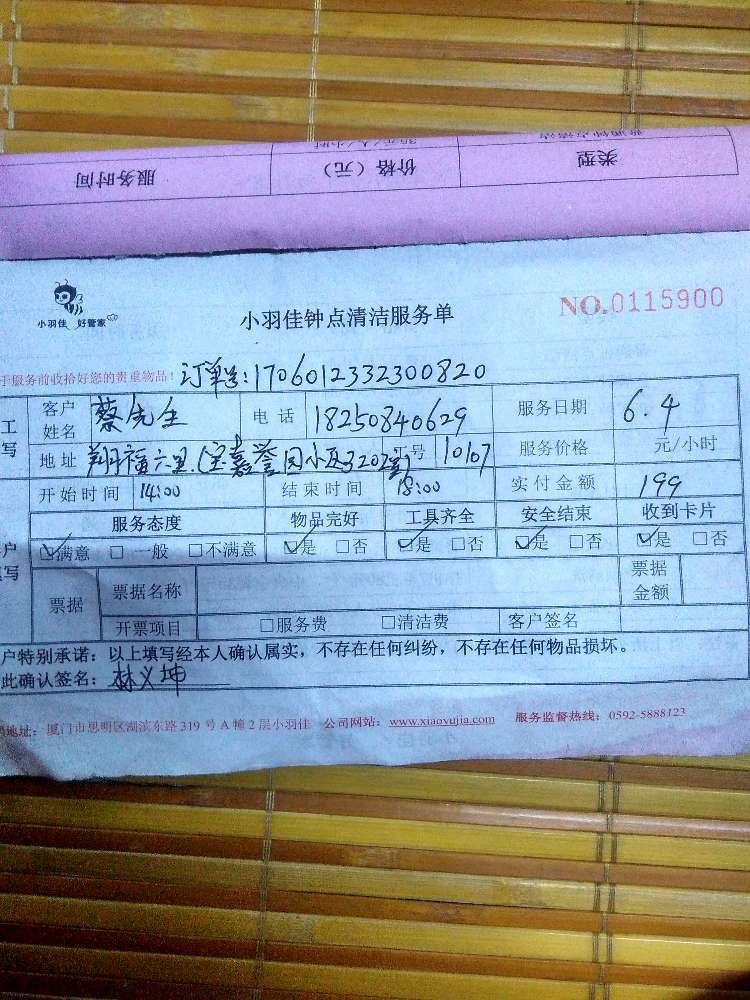 普通钟点清洁 30元/人/小时
类型 价格（元） 服务时间
小羽佳 好管家
小羽佳钟点清洁服务单
NO.0115900
于服务前收拾好您的贵重物品！ 订单号:1706012332300820
工 客户姓名 蔡先生 电话 18250840629 服务日期 6.4
写 地址 翔福六里.(宝嘉誉园小区3202室) 工号 10107 服务价格 元/小时
开始时间 14:00 结束时间 18:00 实付金额 199
服务态度 物品完好 工具齐全 安全结束 收到卡片
户 ☑满意 □一般 □不满意 ☑是 □否 ☑是 □否 ☑是 □否 ☑是 □否
写 票据 票据名称 票据金额
开票项目 □服务费 □清洁费 客户签名
户特别承诺：以上填写经本人确认属实，不存在任何纠纷，不存在任何物品损坏。
此确认签名：林义坤
地址：厦门市思明区湖滨东路319号A幢2层小羽佳 公司网站：www.xiaoyujia.com 服务监督热线：0592-5888123